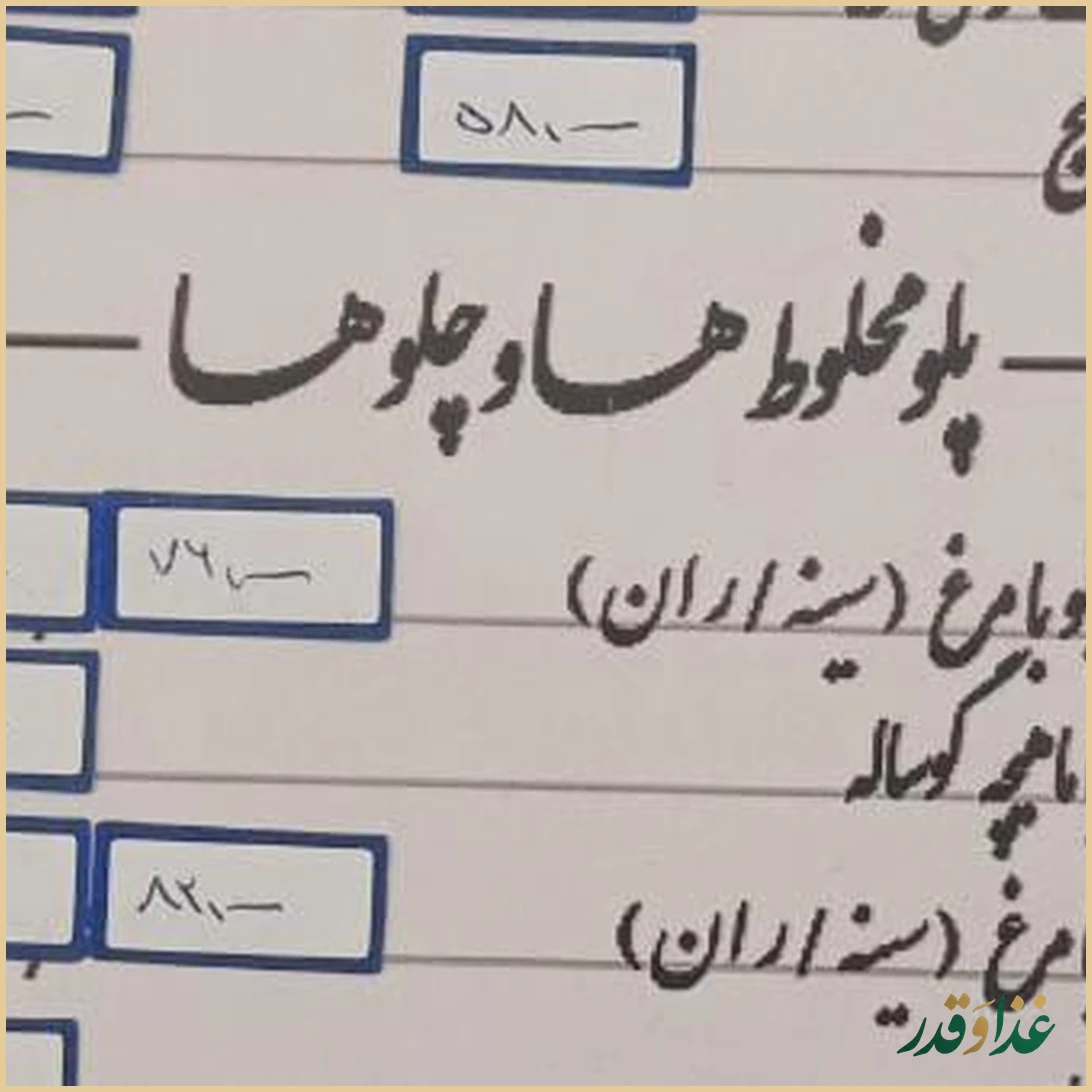 ۵۸,—
پلو مخلوط ها و چلو ها
با مرغ (سینه / ران) ۷۶,—
ماهیچه گوساله
مرغ (سینه / ران) ۸۲,—
غذا و قدر